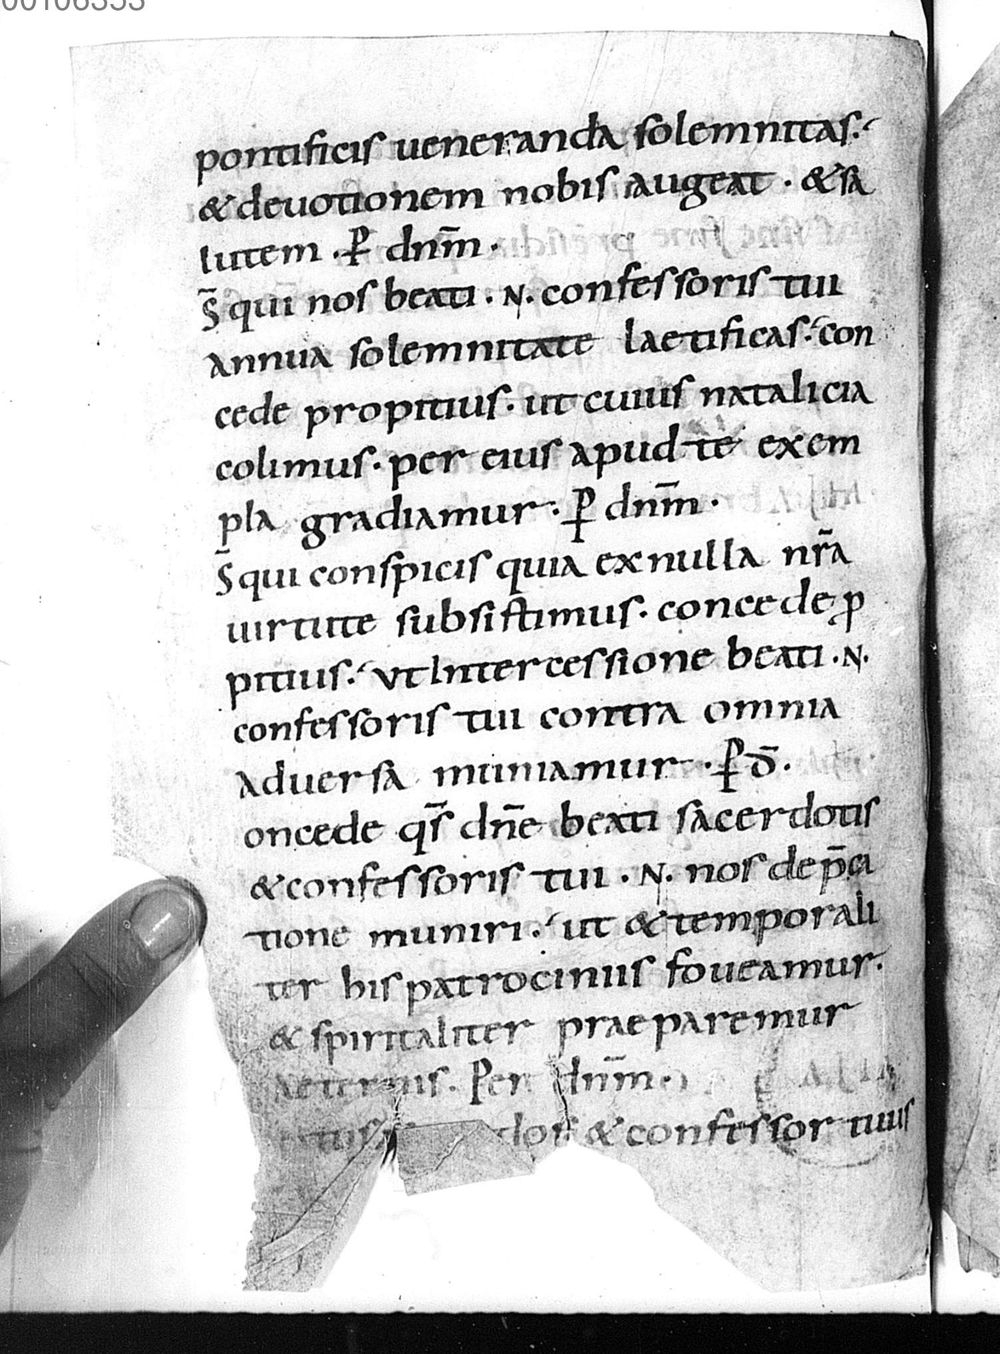 00106353
pontificis ueneranda solemnitas.
& deuotionem nobis augeat · & sa
lutem · P̄ dnm̄ ·
S̄ qui nos beati · N · confessoris tui
annua solemnitate laetificas. con
cede propitius · ut cuius natalicia
colimus · per eius apud te exem
pla gradiamur · P̄ dnm̄ ·
S̄ qui conspicis quia ex nulla nr̄a
uirtute subsistimus · concede ꝓ
pitius. Vt Intercessione beati · N ·
confessoris tui contra omnia
aduersa muniamur · P̄ d̄ ·
oncede qs̄ dn̄e beati sacerdotis
& confessoris tui · N · nos de p̄ca
tione muniri. ut & temporali
ter his patrociniis foueamur.
& spiritaliter praeparemur
aeternis. Per dnm̄.
& confessor tuus